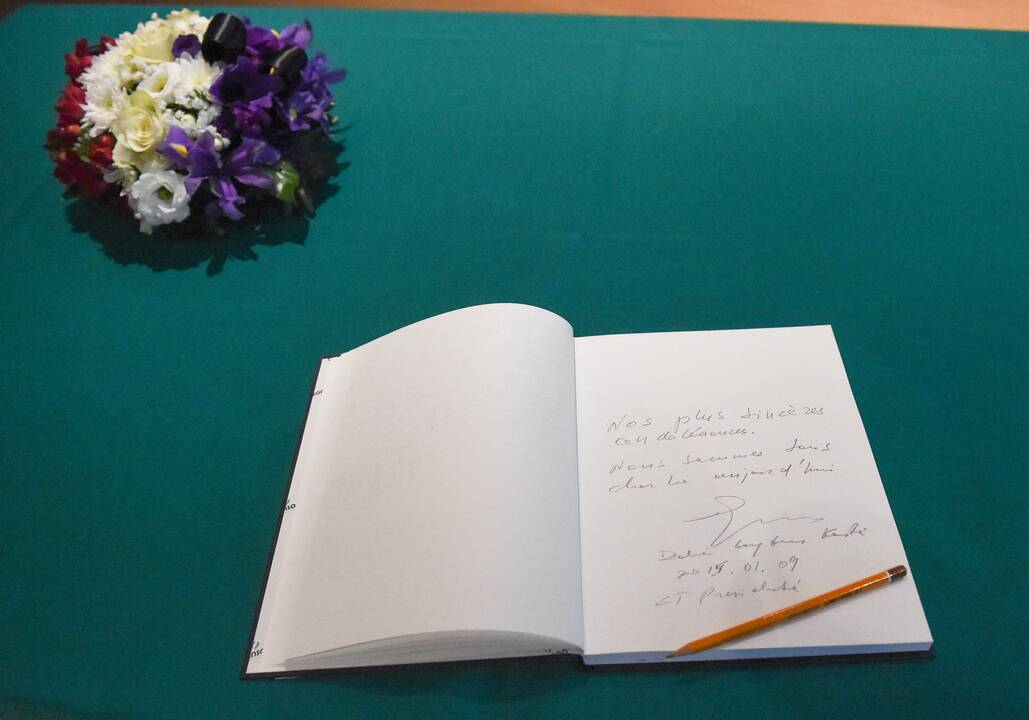 Nos plus sincères
condoléances.
Nous sommes tous
charlie aujourd'hui
Dalia
2015.01.09
LT Presidenté